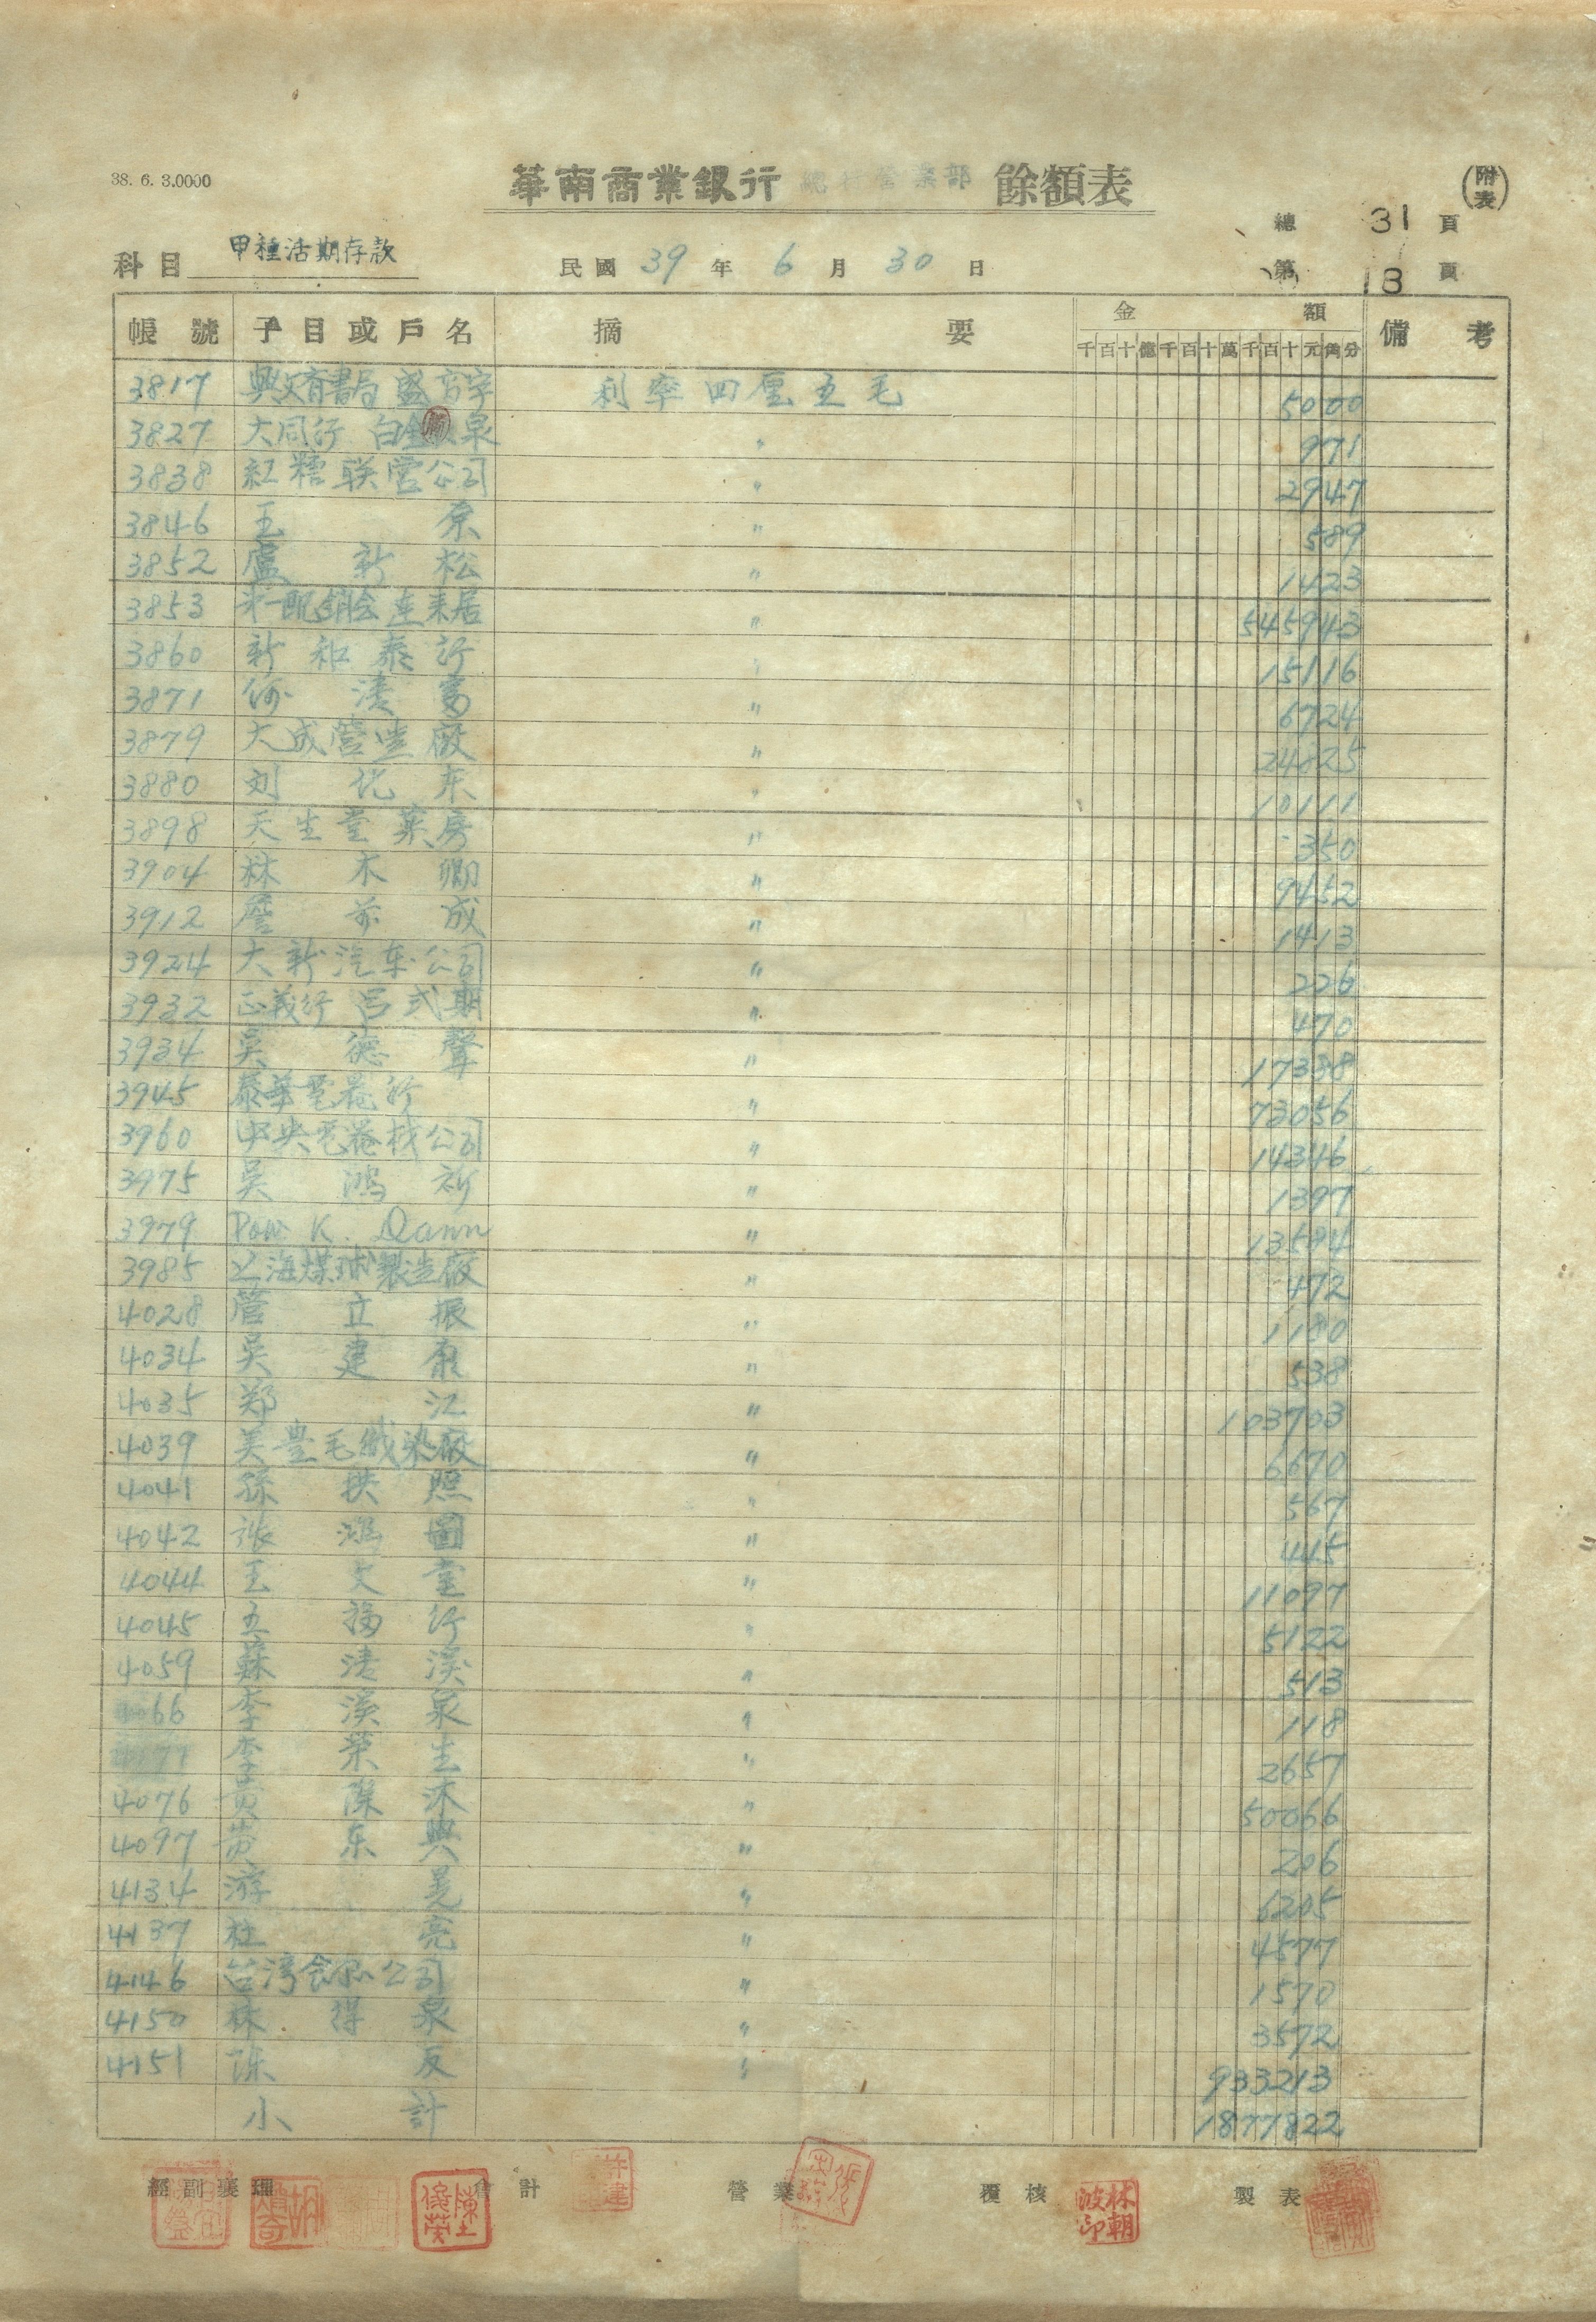 38. 6. 3.0000
華南商業銀行 總行營業部 餘額表
(附表)
總 31 頁
科目 甲種活期存款 民國 39 年 6 月 30 日 第 13 頁
帳號 子目或戶名 摘要 金額 備考
千百十億千百十萬千百十元角分
3817 興文育書局 盛 利率四厘五毛 5000
3827 大同行 白金泉 〃 971
3838 紅糖联营公司 〃 2947
3846 王 京 〃 589
3852 盧新松 〃 1423
3853 配銷会 〃 545943
3860 新和泰行 〃 15116
3871 何 〃 6724
3879 大成營造廠 〃 24825
3880 刘化东 〃 10111
3898 天生堂葯房 〃 350
3904 林木卿 〃 9452
3912 詹 成 〃 1413
3924 大新汽车公司 〃 226
3932 正義行 呂式期 〃 470
3934 吳德聲 〃 17338
3945 泰華電 行 〃 73056
3960 中央电 材公司 〃 14346
3975 吳鴻 〃 1397
3979 K. 〃 13594
3985 上海煤球製造廠 〃 472
4028 管立振 〃 1180
4034 吳建 〃 538
4035 郑江 〃 103703
4039 美豊毛織染廠 〃 6670
4041 孫 照 〃 567
4042 張鴻圖 〃 445
4044 王文堂 〃 11097
4045 五福行 〃 5122
4059 蘇清溪 〃 513
66 李溪泉 〃 118
李荣生 〃 2657
4076 黄 〃 50066
4097 黄东興 〃 206
4134 游 〃 6205
4137 杜亮 〃 4577
4146 台湾 公司 〃 1570
4150 林得泉 〃 3572
4151 陈反 〃 933213
小計 1877822
經副襄理 會計 營業 覆核 製表
林朝波印